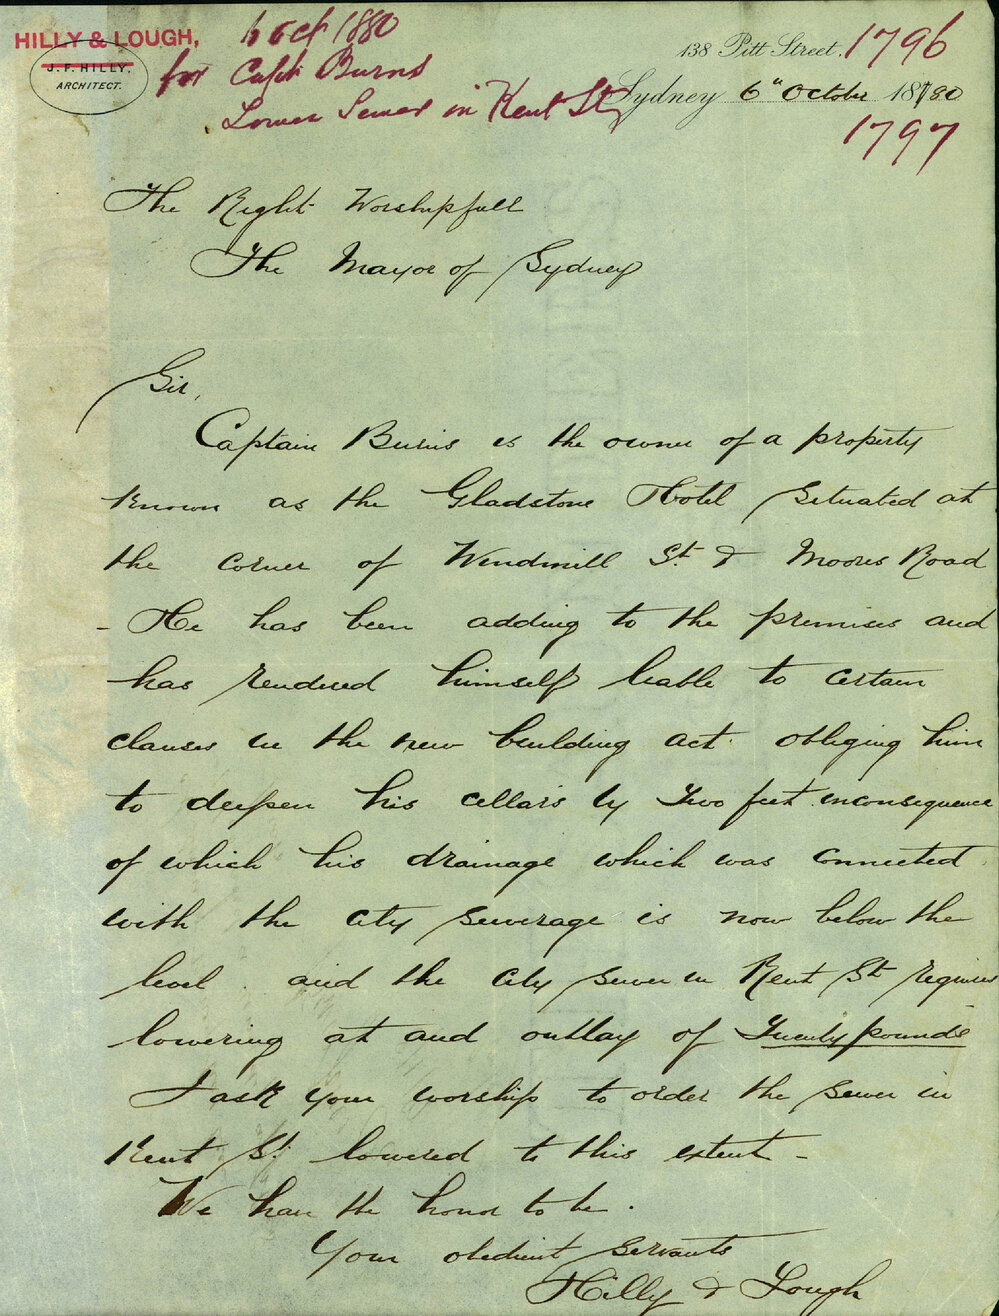 HILLY & LOUGH,
J. F. HILLY,
ARCHITECT.
6 Oct 1880
for Capt Burns
Lower Sewer in Kent St
138 Pitt Street,
1796
Sydney 6th October 1880
1797
The Right Worshipfull
The Mayor of Sydney
Sir,
Captain Burns is the owner of a property
known as the Gladstone Hotel situated at
the corner of Windmill St & Moores Road
- He has been adding to the premises and
has rendered himself liable to certain
clauses in the new building act obliging him
to deepen his cellars by Two feet inconsequence
of which his drainage which was connected
with the city sewerage is now below the
level. and the city sewer in Kent St requires
lowering at and outlay of Twenty pounds
I ask your worship to order the sewer in
Kent St. lowered to this extent -
We have the honor to be.
Your obedient servants
Hilly & Lough